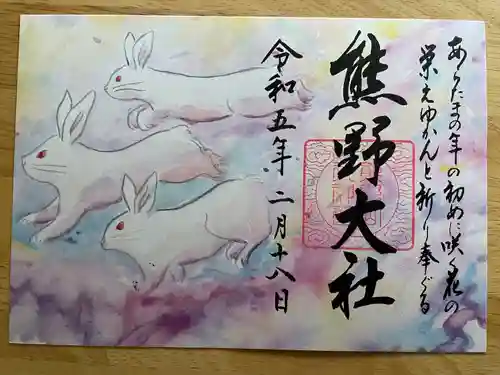 あらたまの年の初めに咲く花の
栄えゆかんと祈り奉ぐる
熊野大社
令和五年 二月十八日